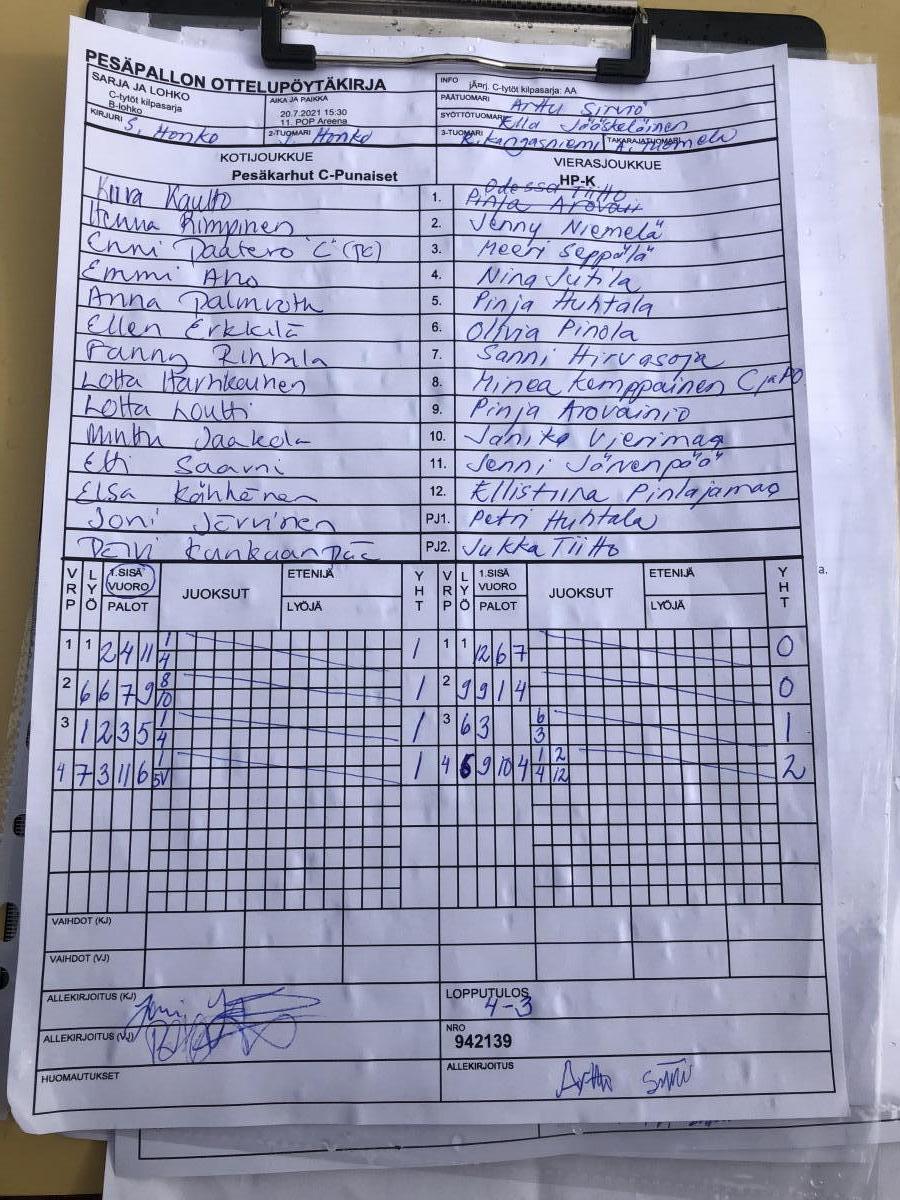 PESÄPALLON OTTELUPÖYTÄKIRJA
SARJA JA LOHKO
C-tytöt kilpasarja
B-lohko
AIKA JA PAIKKA
20.7.2021 15:30
11. POP Areena
INFO
jÄrj. C-tytöt kilpasarja: AA
PÄÄTUOMARI Arttu Sirviö
SYÖTTÖTUOMARI Ella Jääskeläinen
KIRJURI S. Honko
2-TUOMARI J. Honko
3-TUOMARI K. Kangasniemi TAKARAJATUOMARI A. Tuomela
KOTIJOUKKUE VIERASJOUKKUE
Pesäkarhut C-Punaiset HP-K
Kiira Kautto 1. Odessa Tiitto
Pinja Arovain
Henna Rimpinen 2. Jenny Niemelä
Enni Paatero "C" (PE) 3. Meeri Seppälä
Emmi Aho 4. Nina Jutila
Anna Palmroth 5. Pinja Huhtala
Ellen Erkkilä 6. Olivia Pinola
Fanny Rintala 7. Sanni Hirvasoja
Lotta 8. Minea Kumppainen C ja PO
Lotta Loutti 9. Pinja Arovainio
Minttu Jaakola 10. Janika Vierimaa
Etti Saarni 11. Jenni Järvenpää
Elsa Kähkönen 12. Ellistiina Pinlajamaa
Joni Järvinen PJ1. Petri Huhtala
Päivi Kankaanpää PJ2. Jukka Tiitto
VRP LYÖ 1.SISÄ VUORO PALOT JUOKSUT ETENIJÄ LYÖJÄ YHT VRP LYÖ 1.SISÄ VUORO PALOT JUOKSUT ETENIJÄ LYÖJÄ YHT
1 1 2 4 11 1/4 1 1 1 12 6 7 0
2 6 6 7 9 8/10 1 2 9 9 1 4 0
3 1 2 3 5 1/4 1 3 6 3 6/3 1
4 7 3 11 6 1/5V 1 4 6 9 10 4 1/4 2/12 2
VAIHDOT (KJ)
VAIHDOT (VJ)
ALLEKIRJOITUS (KJ) LOPPUTULOS
4-3
ALLEKIRJOITUS (VJ) NRO
942139
HUOMAUTUKSET ALLEKIRJOITUS